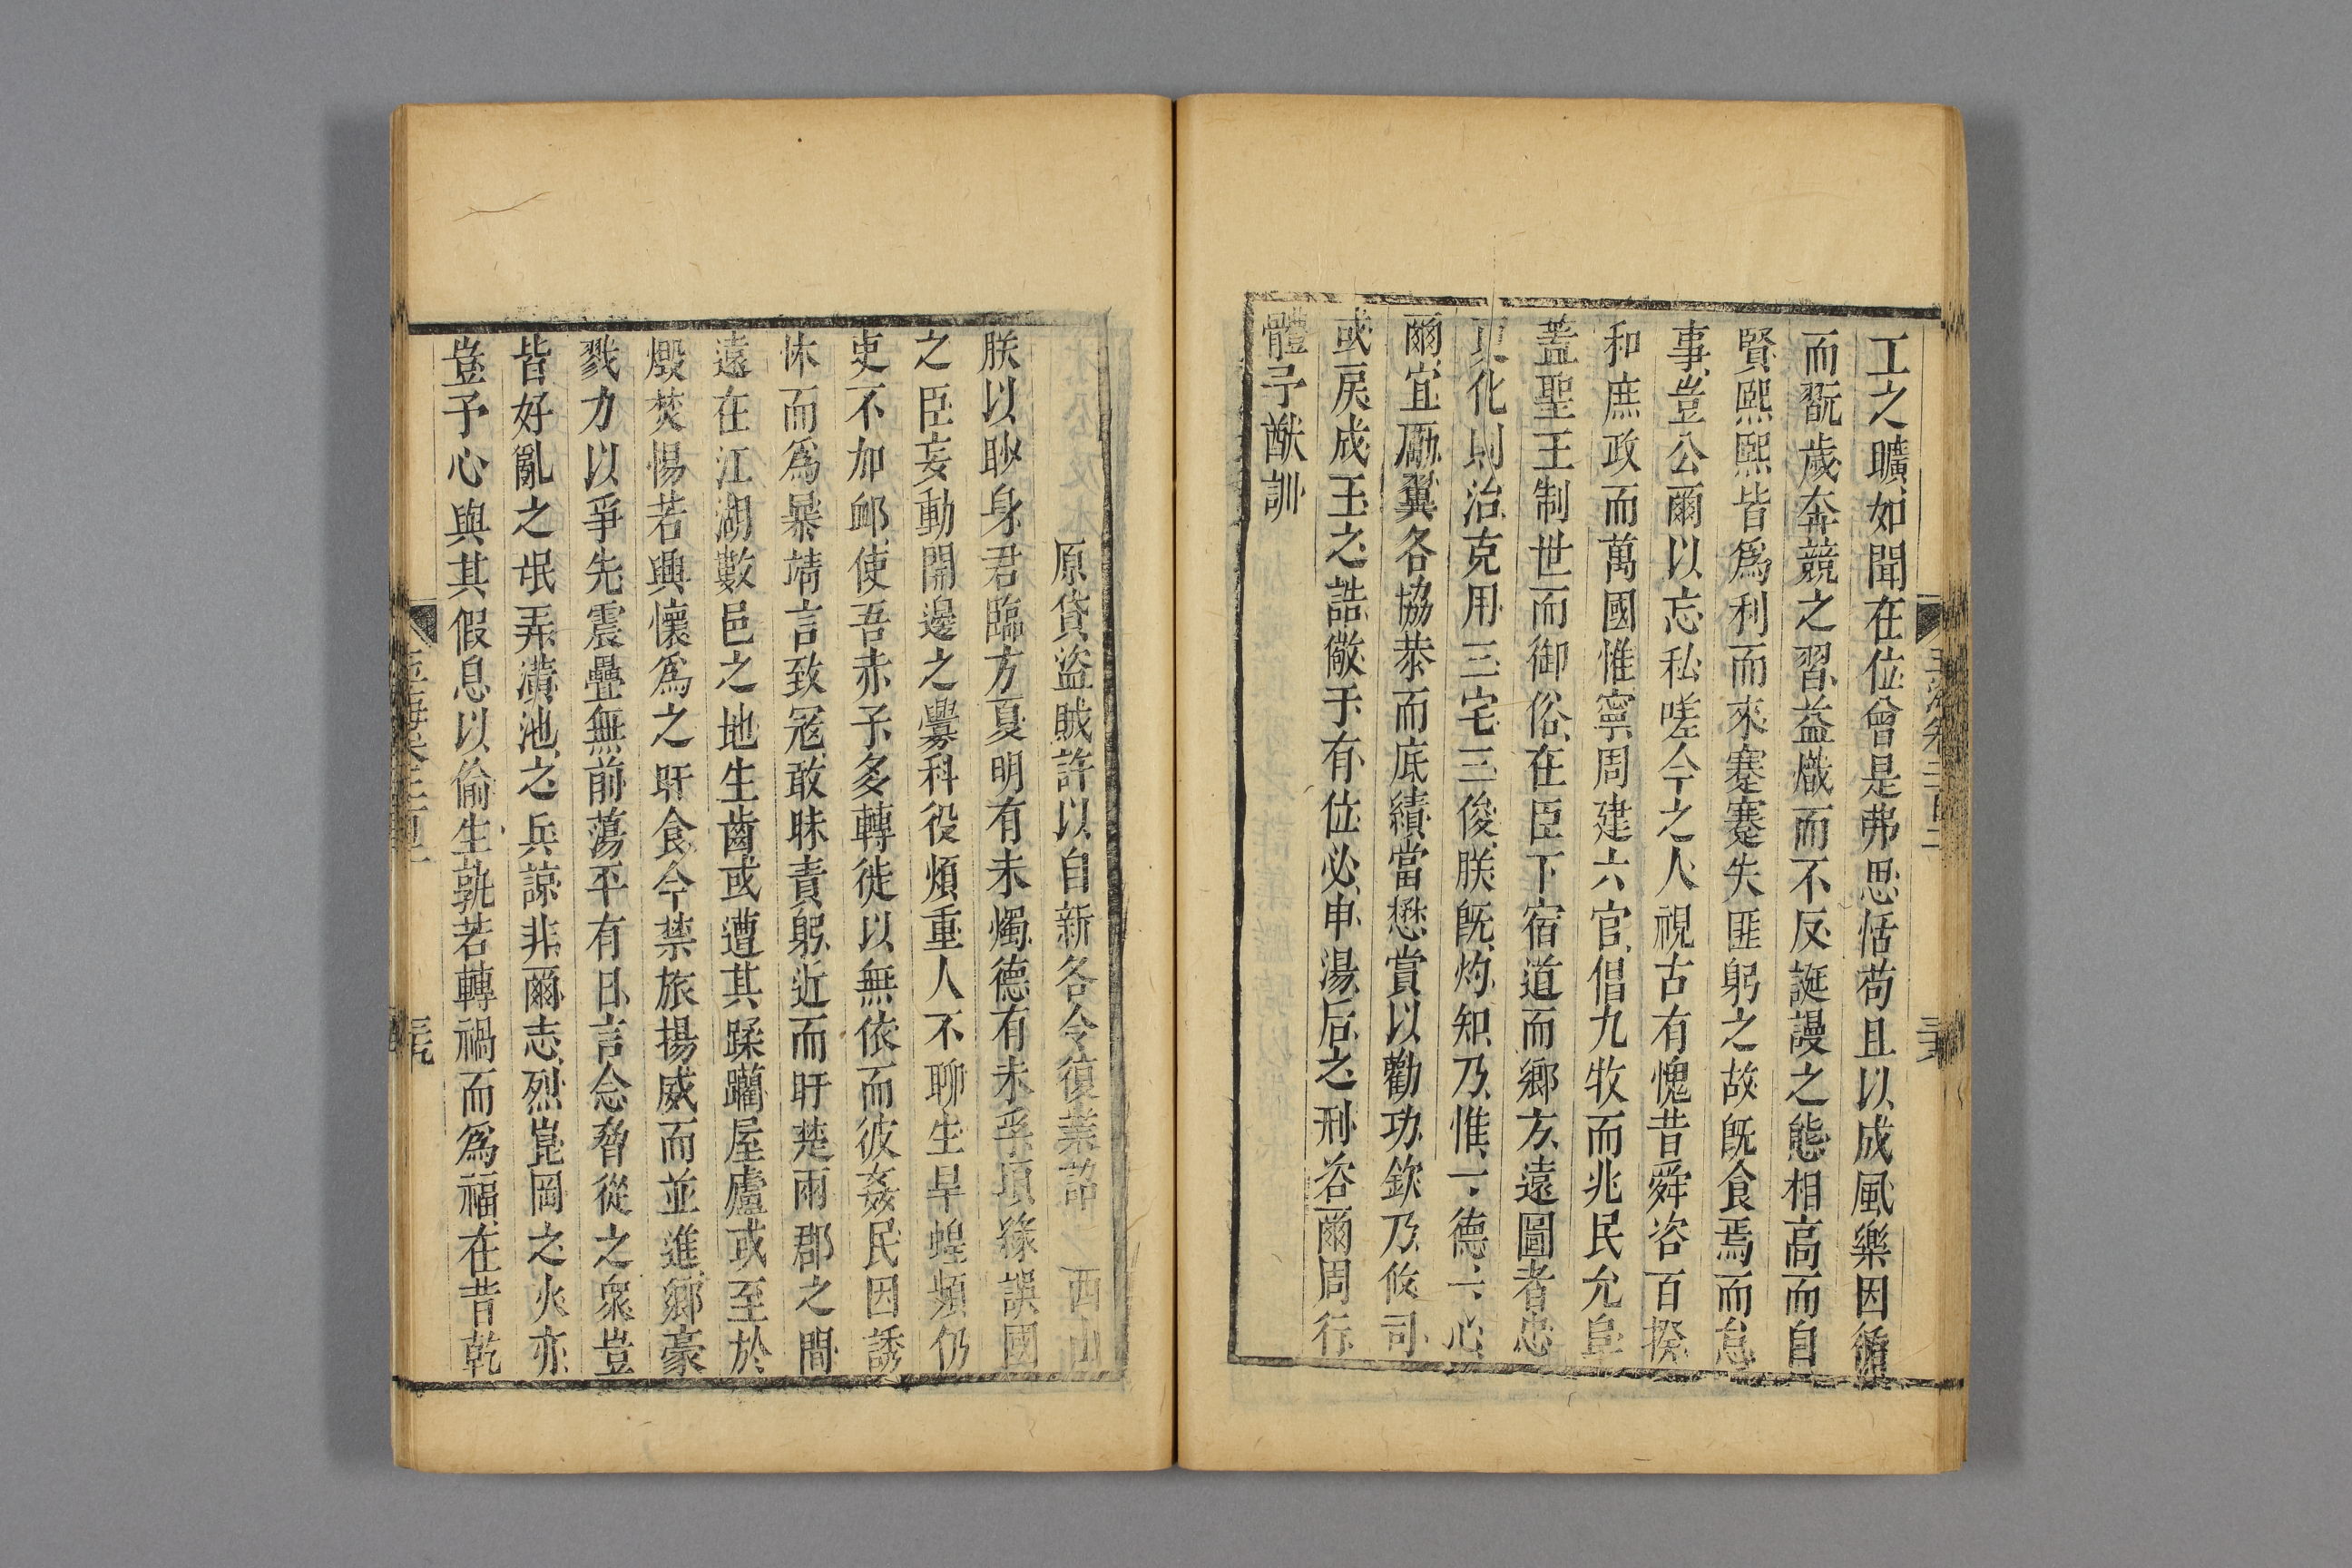 工之曠如聞在位曾是弗思恬苟且以成風樂因循
而翫歲奔競之習益熾而不反誕謾之態相高而自
賢熙熙皆爲利而來蹇蹇失匪躬之故旣食焉而怠
事豈公爾以忘私嗟今之人視古有愧昔舜咨百揆
和庶政而萬國惟寧周建六官倡九牧而兆民允阜
蓋聖王制世而御俗在臣下宿道而鄉方遠圖者忠
更化則治克用三宅三俊朕旣灼知乃惟一德一心
爾宜勵翼各協恭而底績當懋賞以勸功欽乃攸司
或戾成王之誥儆于有位必申湯后之刑咨爾周行
體予猷訓
原貸盜賊許以自新各令復業詔 西山
朕以眇身君臨方夏明有未燭德有未孚頃緣誤國
之臣妄動開邊之釁科役煩重人不聊生旱蝗頻仍
吏不加卹使吾赤子多轉徙以無依而彼姦民因誘
怵而爲暴靖言致寇敢昧責躬近而盱楚兩郡之間
遠在江湖數邑之地生齒或遭其蹂躪屋廬或至於
燬焚惕若興懷爲之旰食今禁旅揚威而並進鄉豪
戮力以爭先震疊無前蕩平有日言念脅從之衆豈
皆好亂之氓弄潢池之兵諒非爾志烈崑岡之火亦
豈予心與其假息以偷生孰若轉禍而爲福在昔乾